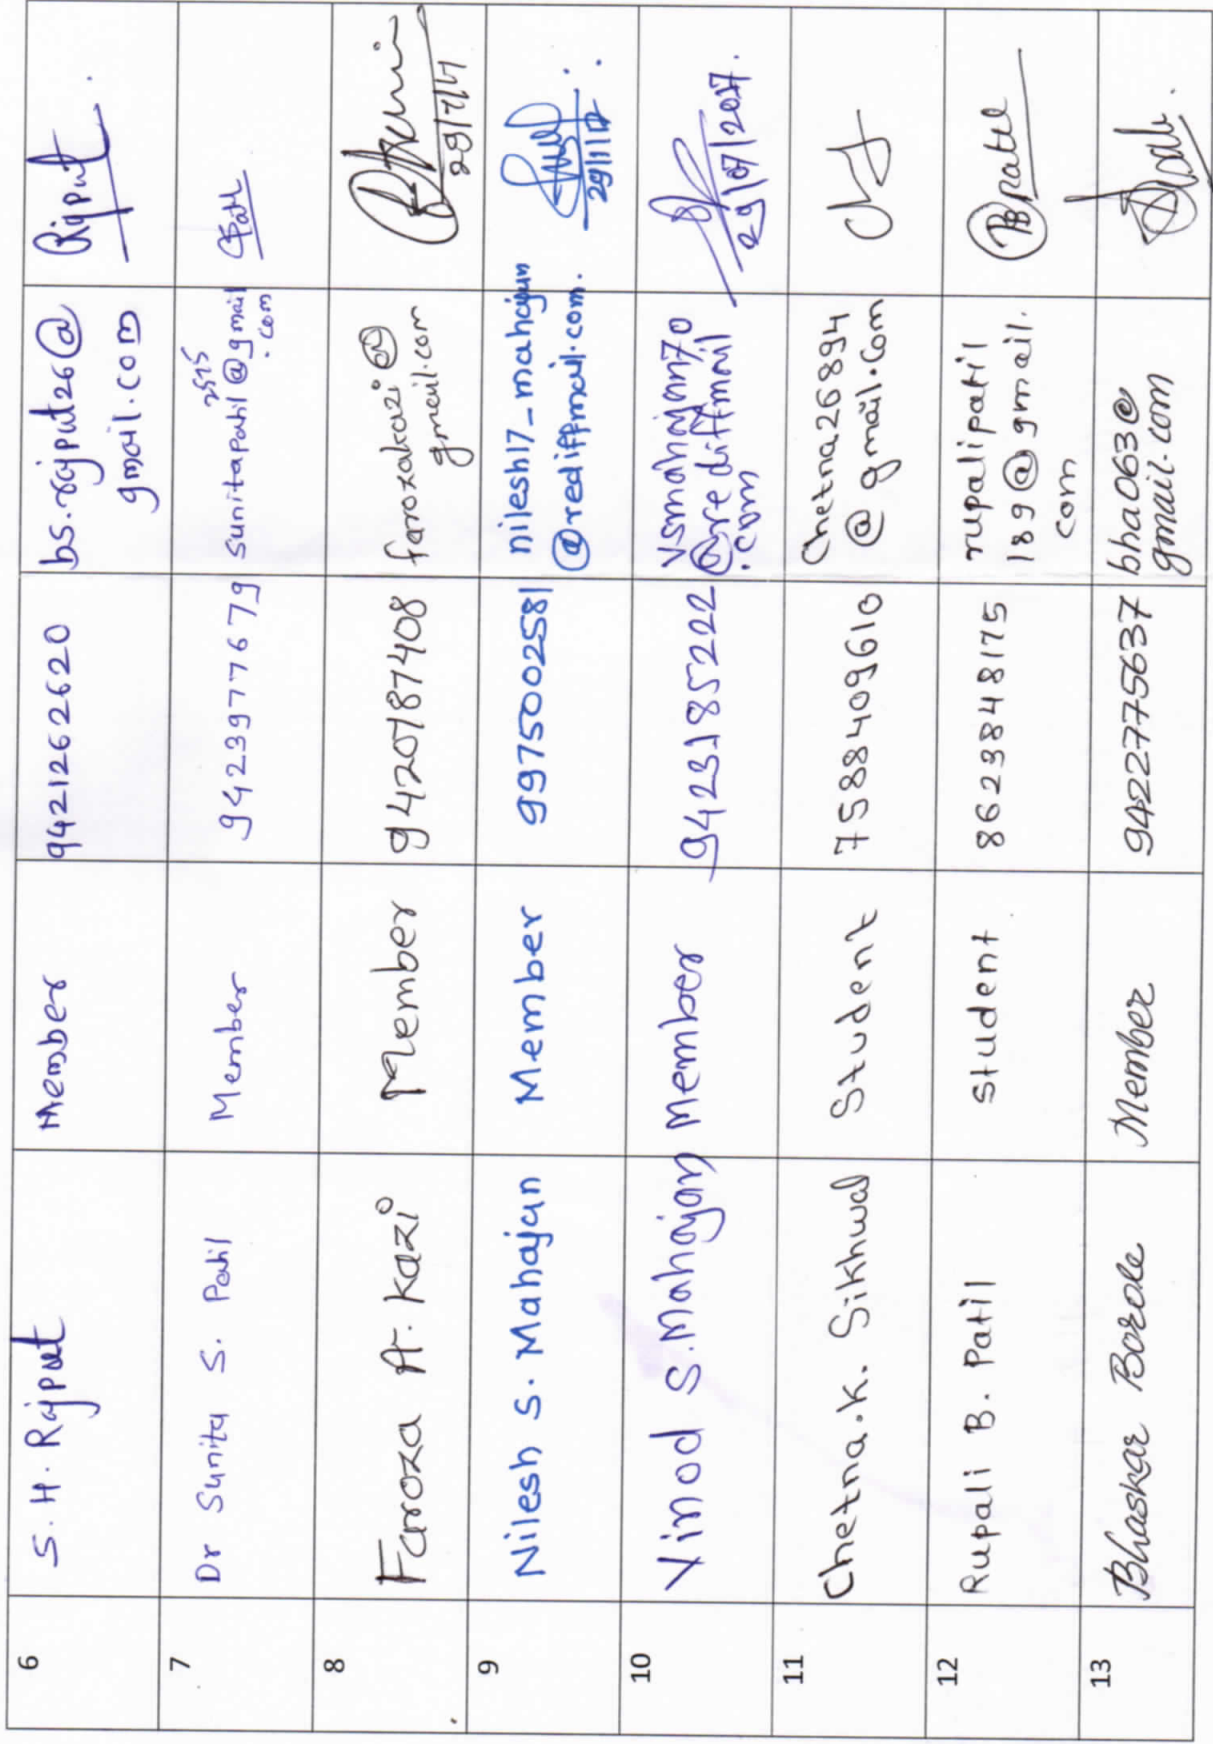 6 S. H. Rajput Member 9421262620 bs.rajput26@
gmail.com Rajput
7 Dr Sunita S. Patil Member 9423977679 sunitapatil2515@gmail
.com Patil
8 Faroza A. Kazi Member 9420787408 farozakazi@
gmail.com
29/7/17
9 Nilesh S. Mahajan Member 9975002581 nilesh17_mahajan
@rediffmail.com.
10 Vinod S. Mahajan Member 9423185222 vsmahajan70
@rediffmail
.com
29/07/2017.
11 Chetna.K. Sikhwal Student 7588409610 Chetna26894
@gmail.com
12 Rupali B. Patil Student 8623848175 rupalipatil
189@gmail.
com RBPatil
13 Bhaskar Borole Member 9422775637 bha063@
gmail.com